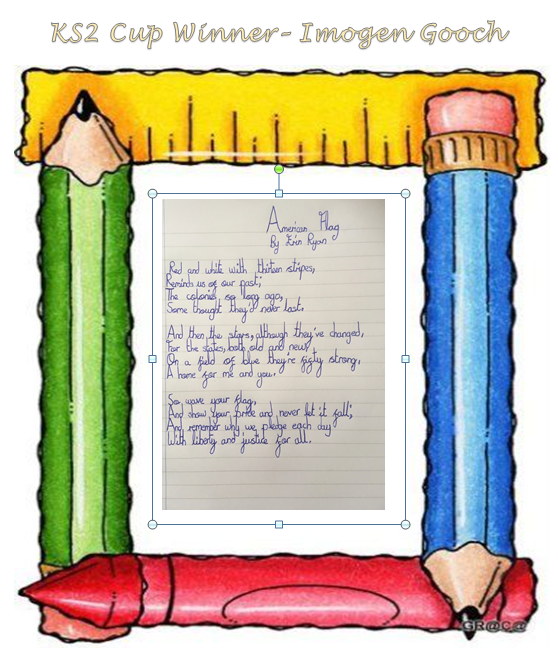 KS2 Cup Winner- Imogen Gooch
American Flag
By Erin Ryan
Red and white with thirteen stripes,
Reminds us of our past;
The colonies, so long ago,
Some thought they'd never last.
And then the stars, although they've changed,
For the states, both old and new,
On a field of blue they're fifty strong,
A home for me and you.
So wave your flag,
And show your pride and never let it fall;
And remember why we pledge each day
With liberty and justice for all.
GR@C@